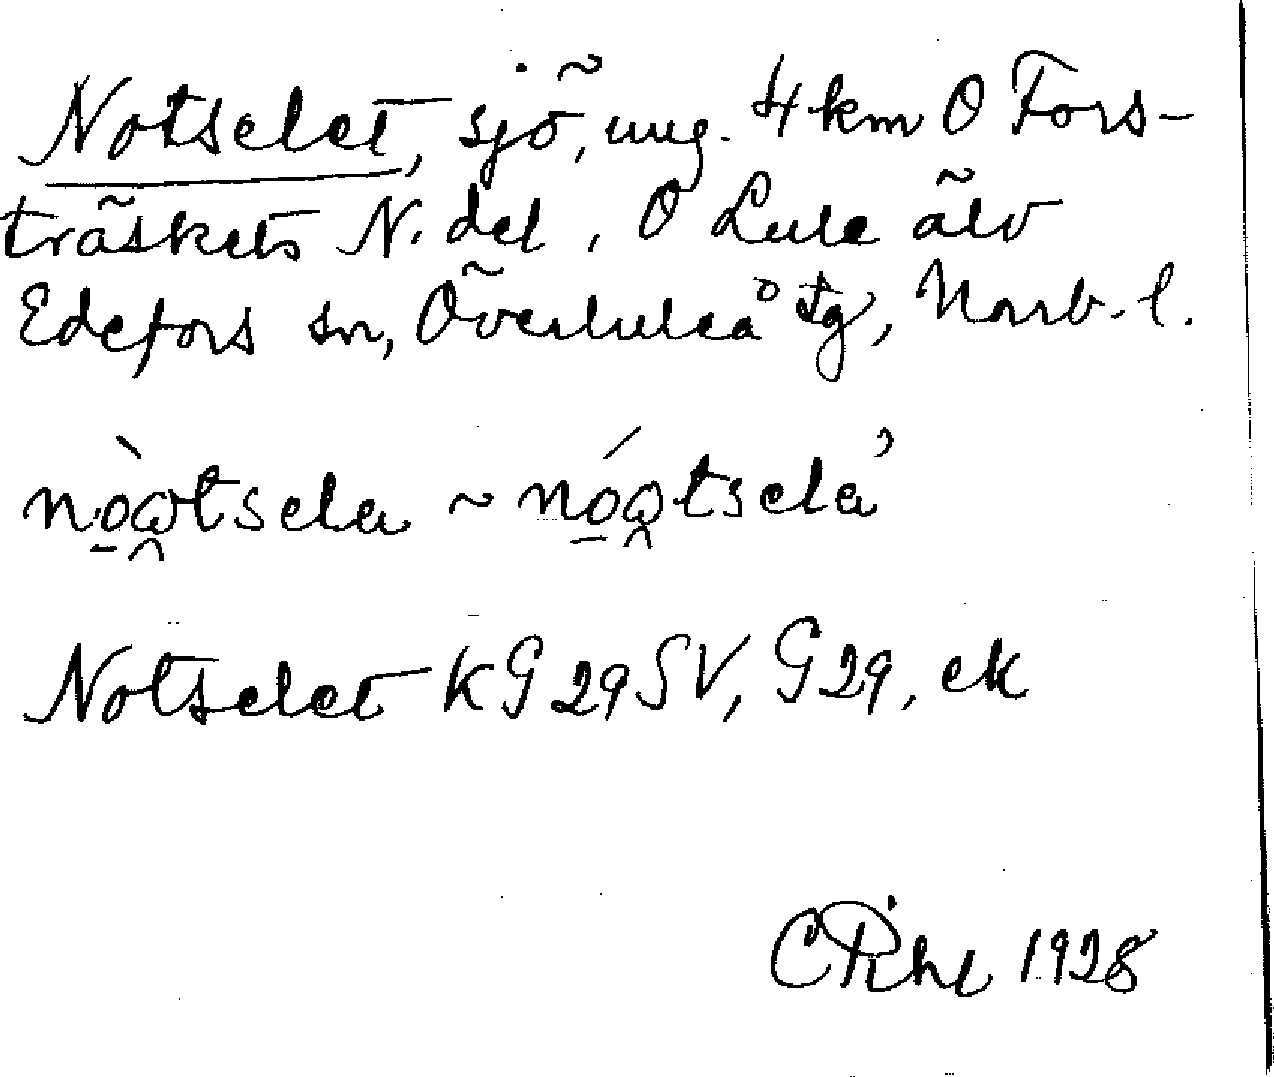 Notselet, sjö, ung. 4 km O Fors-
träskets N. del, O Lule älv
Edefors sn, Överluleå tg, Norrb. l.
nò̱ω̯tsela ~ nó̱ω̯tselaʾ
Notselet KG 29 SV, G 29, ek
1928